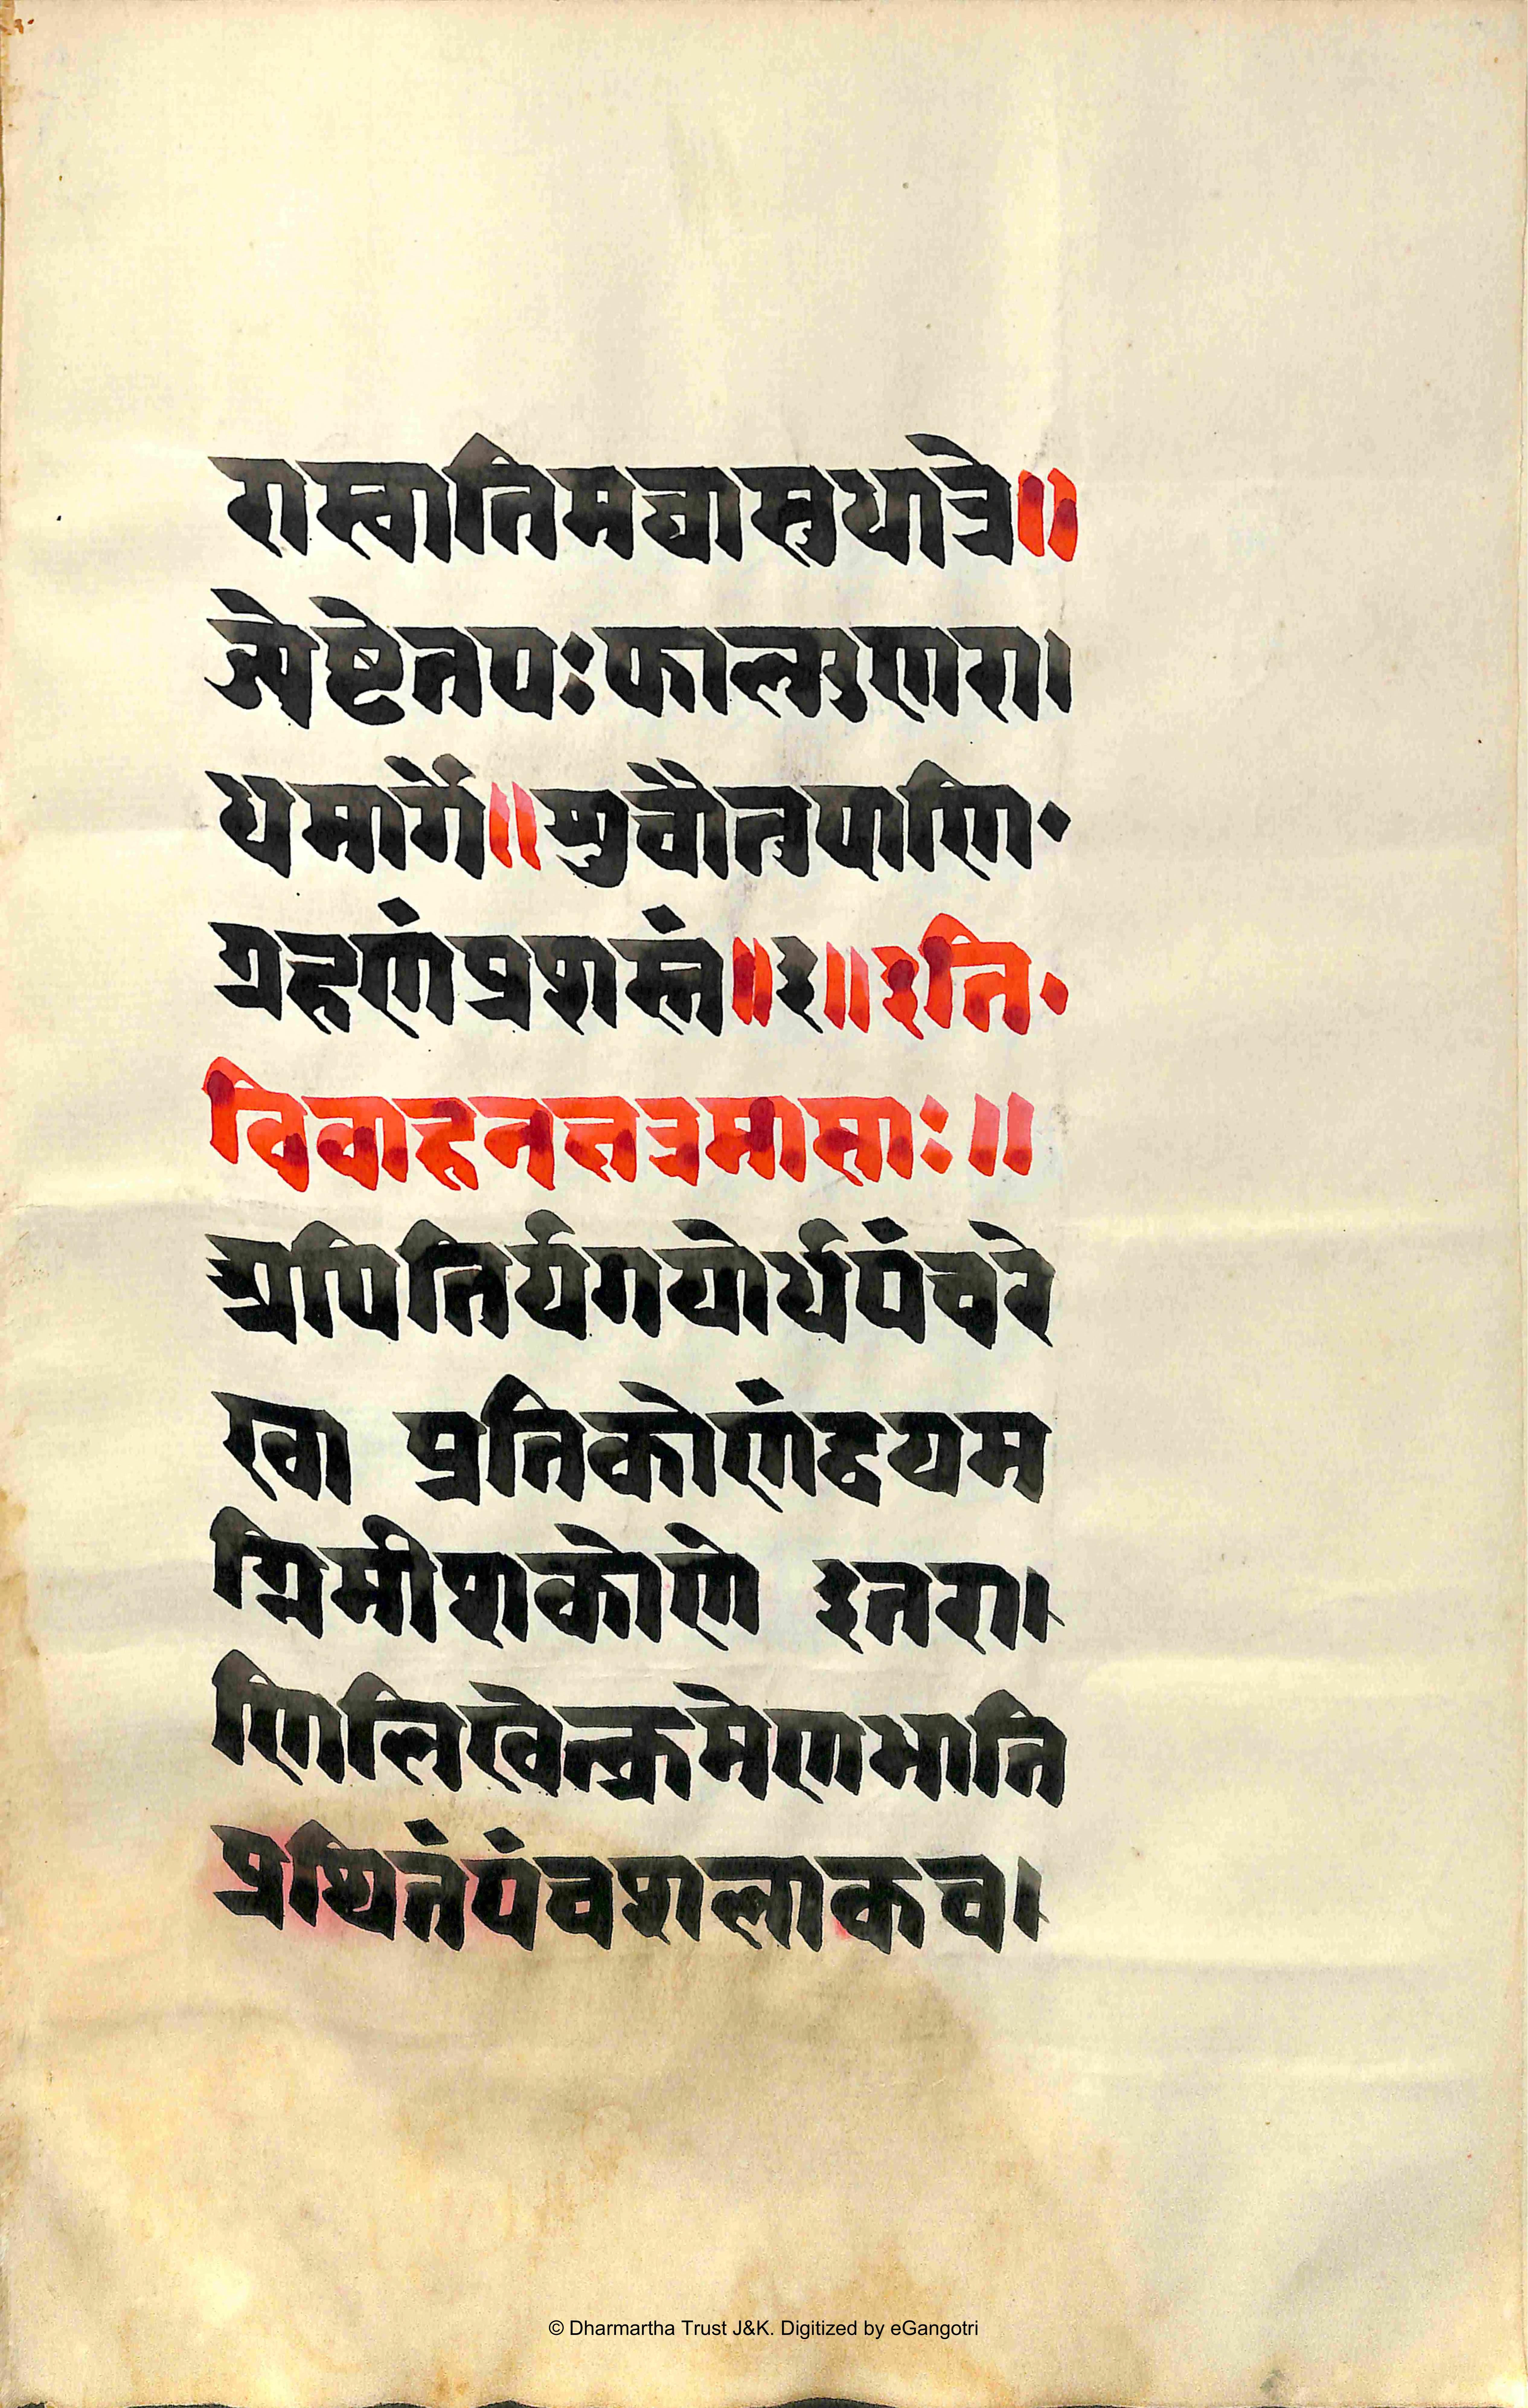 रास्वातिमघासुधात्रे॥
ज्येष्टेतपःफाल्गुणरा।
धमार्गे॥शुचौतुपाणि॰
ग्रहणंप्रशस्तं॥३॥इति॰
विवाहनक्षत्रमासाः॥
अपितिर्यगयोर्धपंचरे
खा प्रतिकोणंद्वयम
ग्निमीशकोणे इतरा।
णिलिखेत्क्रमेणभाति
प्रथितंपंचशलाकच।
© Dharmartha Trust J&K. Digitized by eGangotri